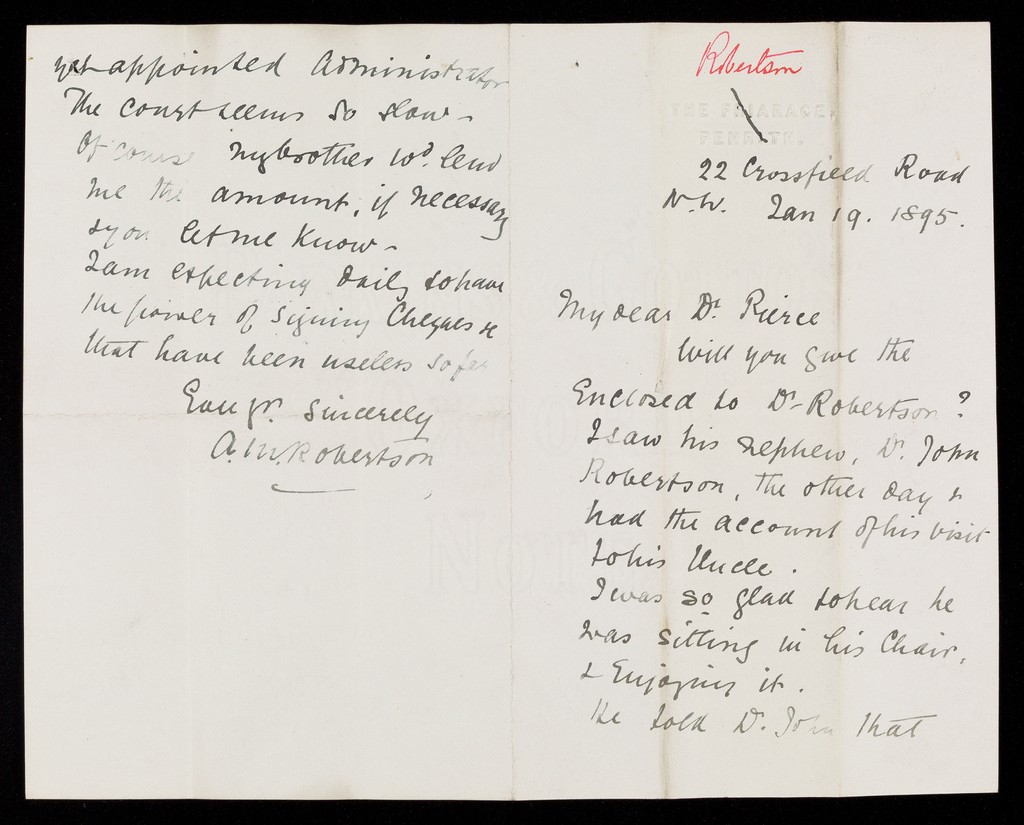 Robertson
THE FRIARAGE,
PENRITH.
22 Crossfield Road
N.W. Jan 19. 1895.
My dear Dr. Pierce
Will you give the
Enclosed to Dr Robertson?
I saw his nephew, Dr. John
Robertson, the other day &
had the account of his visit
to his Uncle.
I was so glad to hear he
was sitting in his Chair,
& Enjoying it.
He told Dr. John that
yet appointed Administrator
The court seems so slow -
Of course my brother wd. lend
me the amount, if necessary
if you let me know -
I am expecting daily to have
the power of signing Cheques
that have been useless so far
Ever yrs. Sincerely
A.M. Robertson